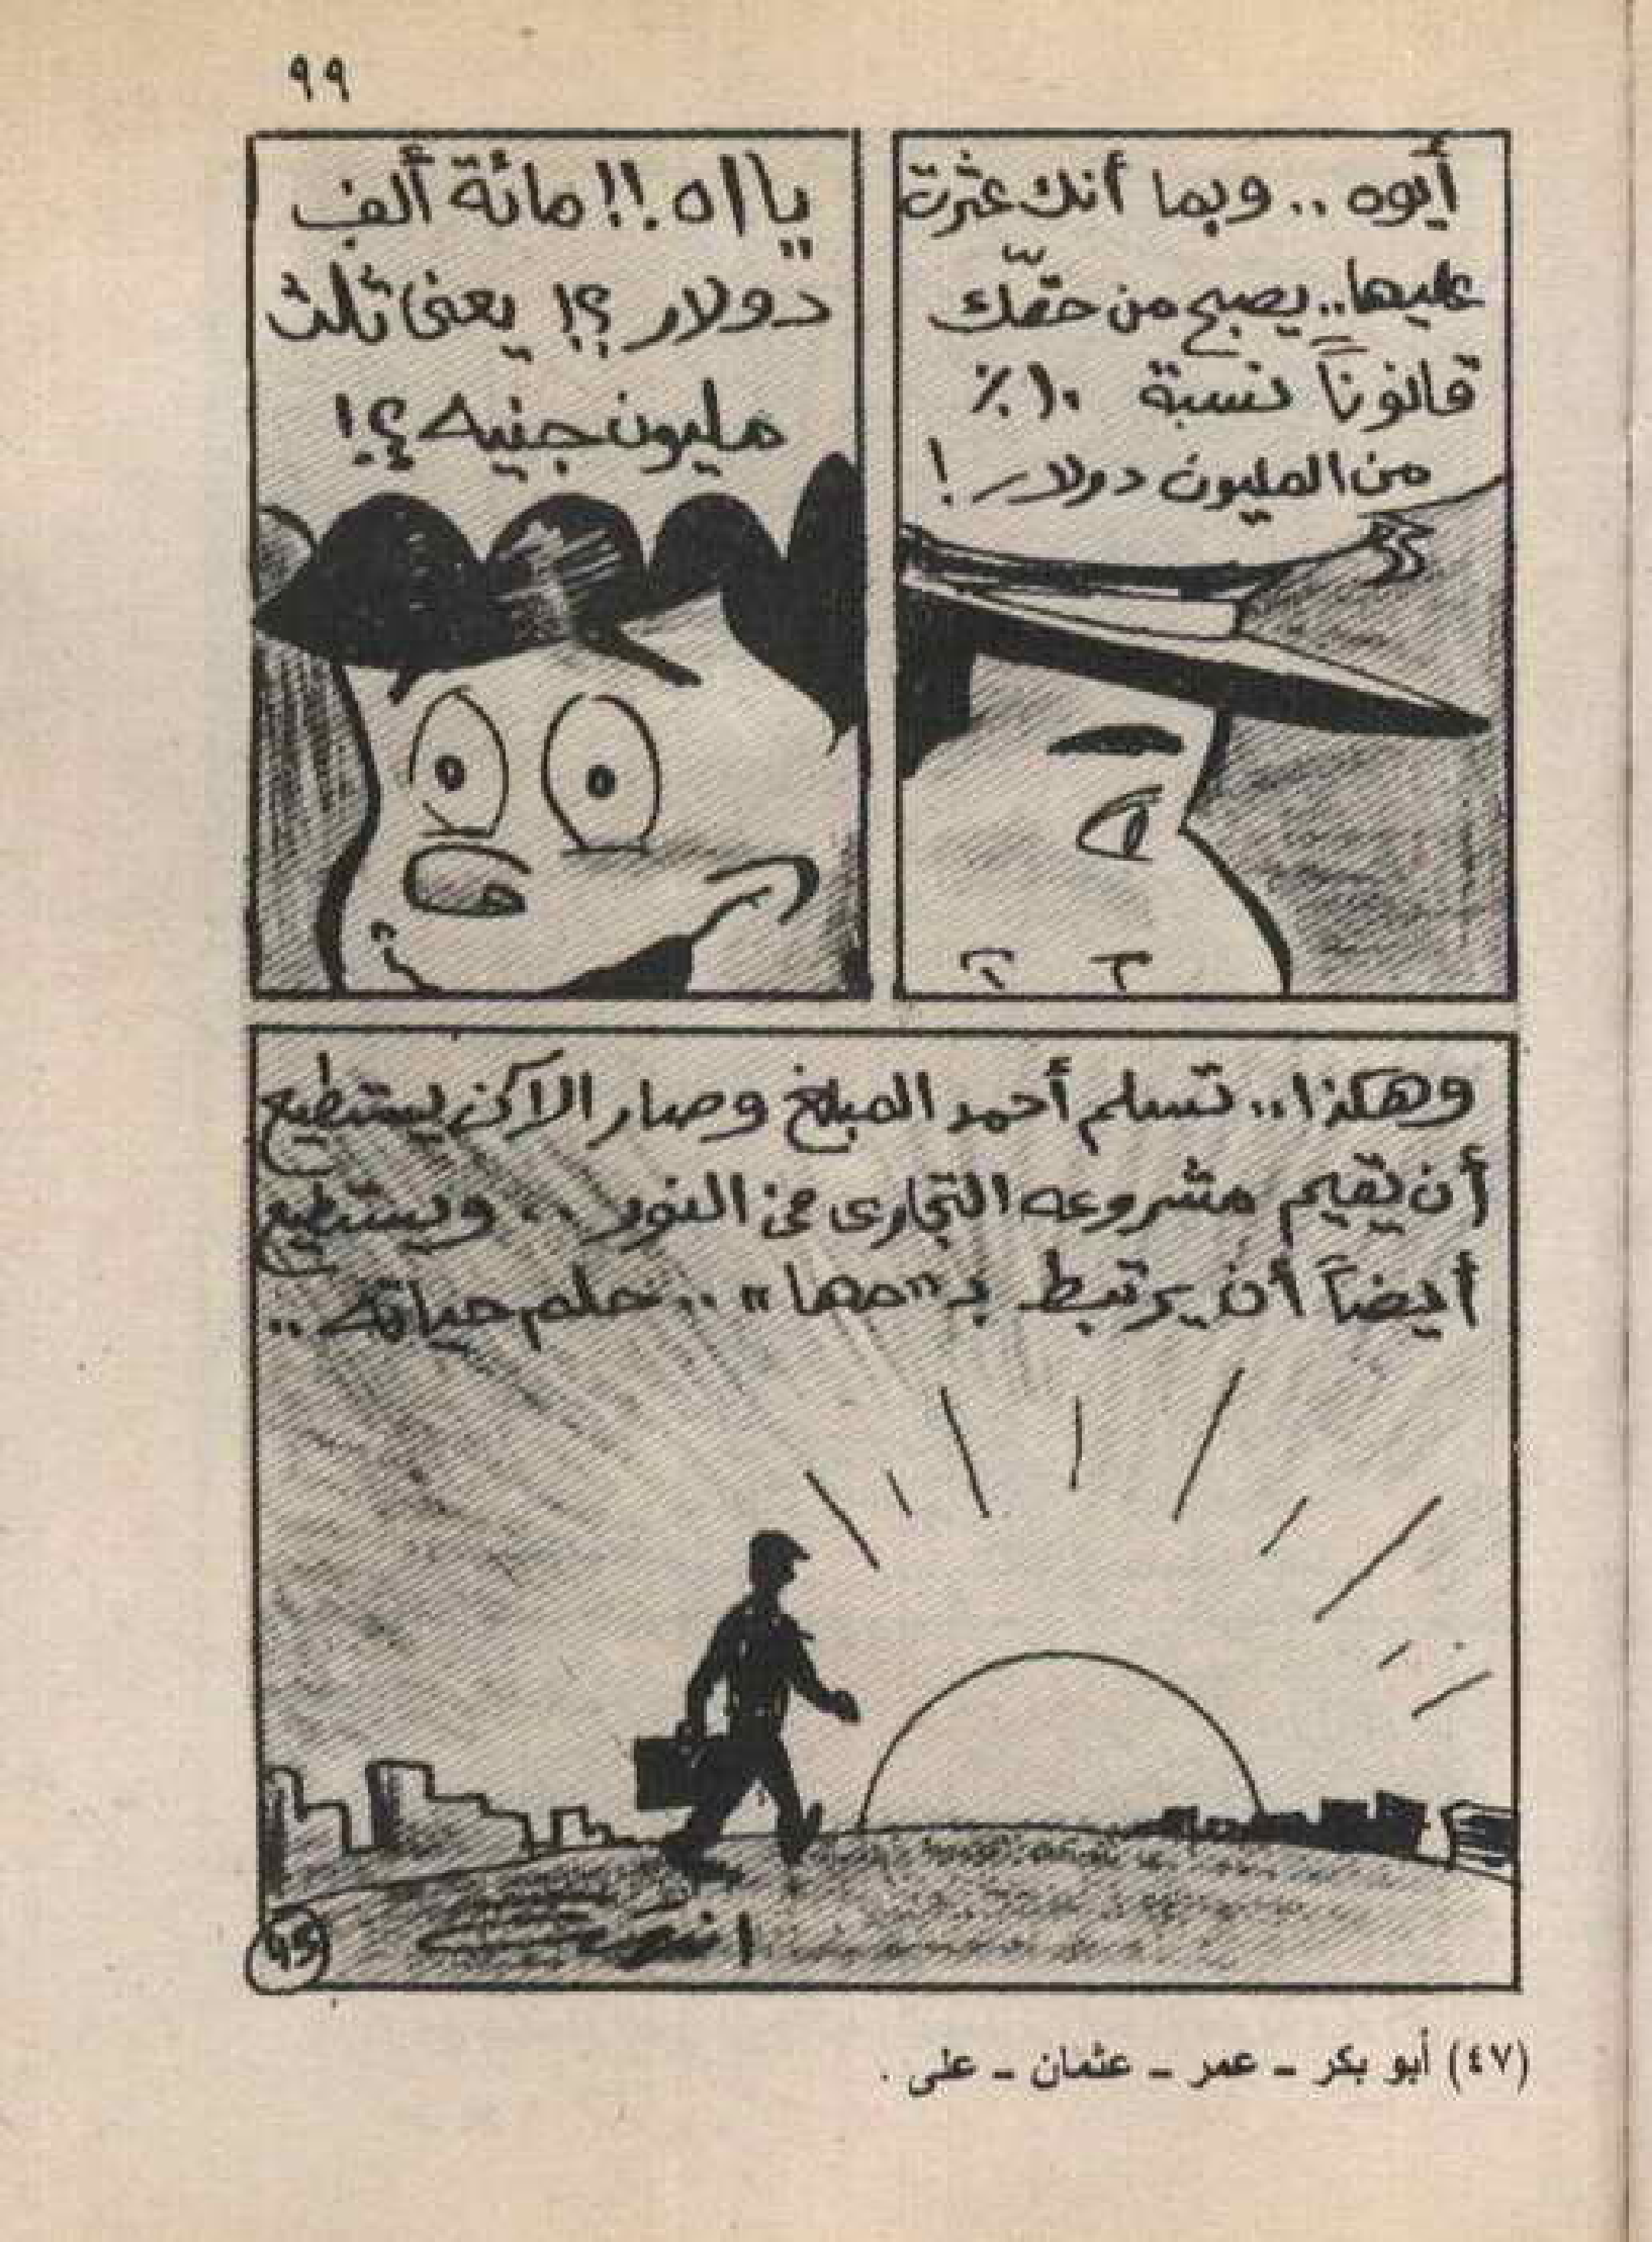 ٩٩
أيوه .. وبما أنك عثرت
عليها .. يصبح من حقّك
قانوناً نسبة ١٠٪
من المليون دولار !
يااااه !! مائة ألف
دولار ؟! يعنى ثلث
مليون جنيه ؟!
وهكذا .. تسلم أحمد المبلغ وصار الآن يستطيع
أن يقيم مشروعه التجارى فى النور .. ويستطيع
أيضاً أن يرتبط بـ "مها" .. حلم حياته ..
(٤٧) أبو بكر - عمر - عثمان - على .